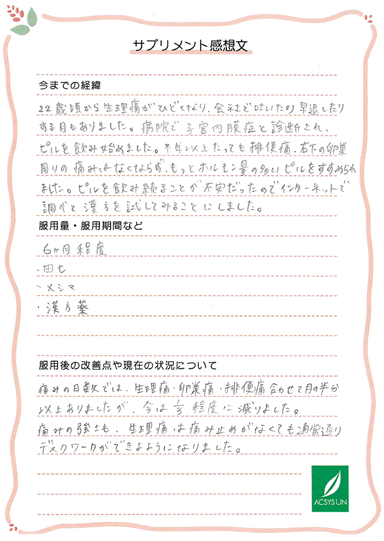 サプリメント感想文
今までの経緯
22歳頃から生理痛がひどくなり、会社で吐いたり早退したり
する日もありました。病院で子宮内膜症と診断され、
ピルを飲み始めました。半年以上たっても排便痛、右下の卵巣
周りの痛みはなくならず、もっとホルモン量の多いピルをすすめられ
ました。ピルを飲み続ることが不安だったのでインターネットで
調べて漢方を試してみることにしました。
服用量・服用期間など
6ヶ月程度
・田七
・メシマ
・漢方薬
服用後の改善点や現在の状況について
痛みの日数では、生理痛・卵巣痛・排便痛合わせて月の半分
以上ありましたが、今は1/3程度に減りました。
痛みの強さも、生理痛は痛み止めがなくても通常通り
デスクワークができるようになりました。
ACSYSUN